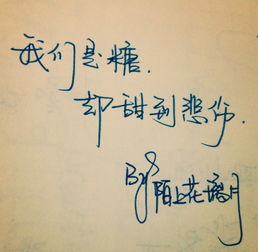 我们是糖.
却甜到悲伤.
By: 陌上花语月